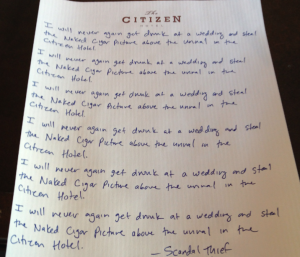 The
CITIZEN
HOTEL
I will never again get drunk at a wedding and steal
the Naked Cigar Picture above the urinal in the
Citizen Hotel.
I will never again get drunk at a wedding and steal
the Naked Cigar Picture above the urinal in the
Citizen Hotel.
I will never again get drunk at a wedding and steal
the Naked Cigar Picture above the urinal in the
Citizen Hotel.
I will never again get drunk at a wedding and steal
the Naked Cigar Picture above the urinal in the
Citizen Hotel.
I will never again get drunk at a wedding and steal
the Naked Cigar Picture above the urinal in the
Citizen Hotel.
I will never again get drunk at a wedding and steal
the Naked Cigar Picture above the urinal in the
Citizen Hotel.
— Scandal Thief